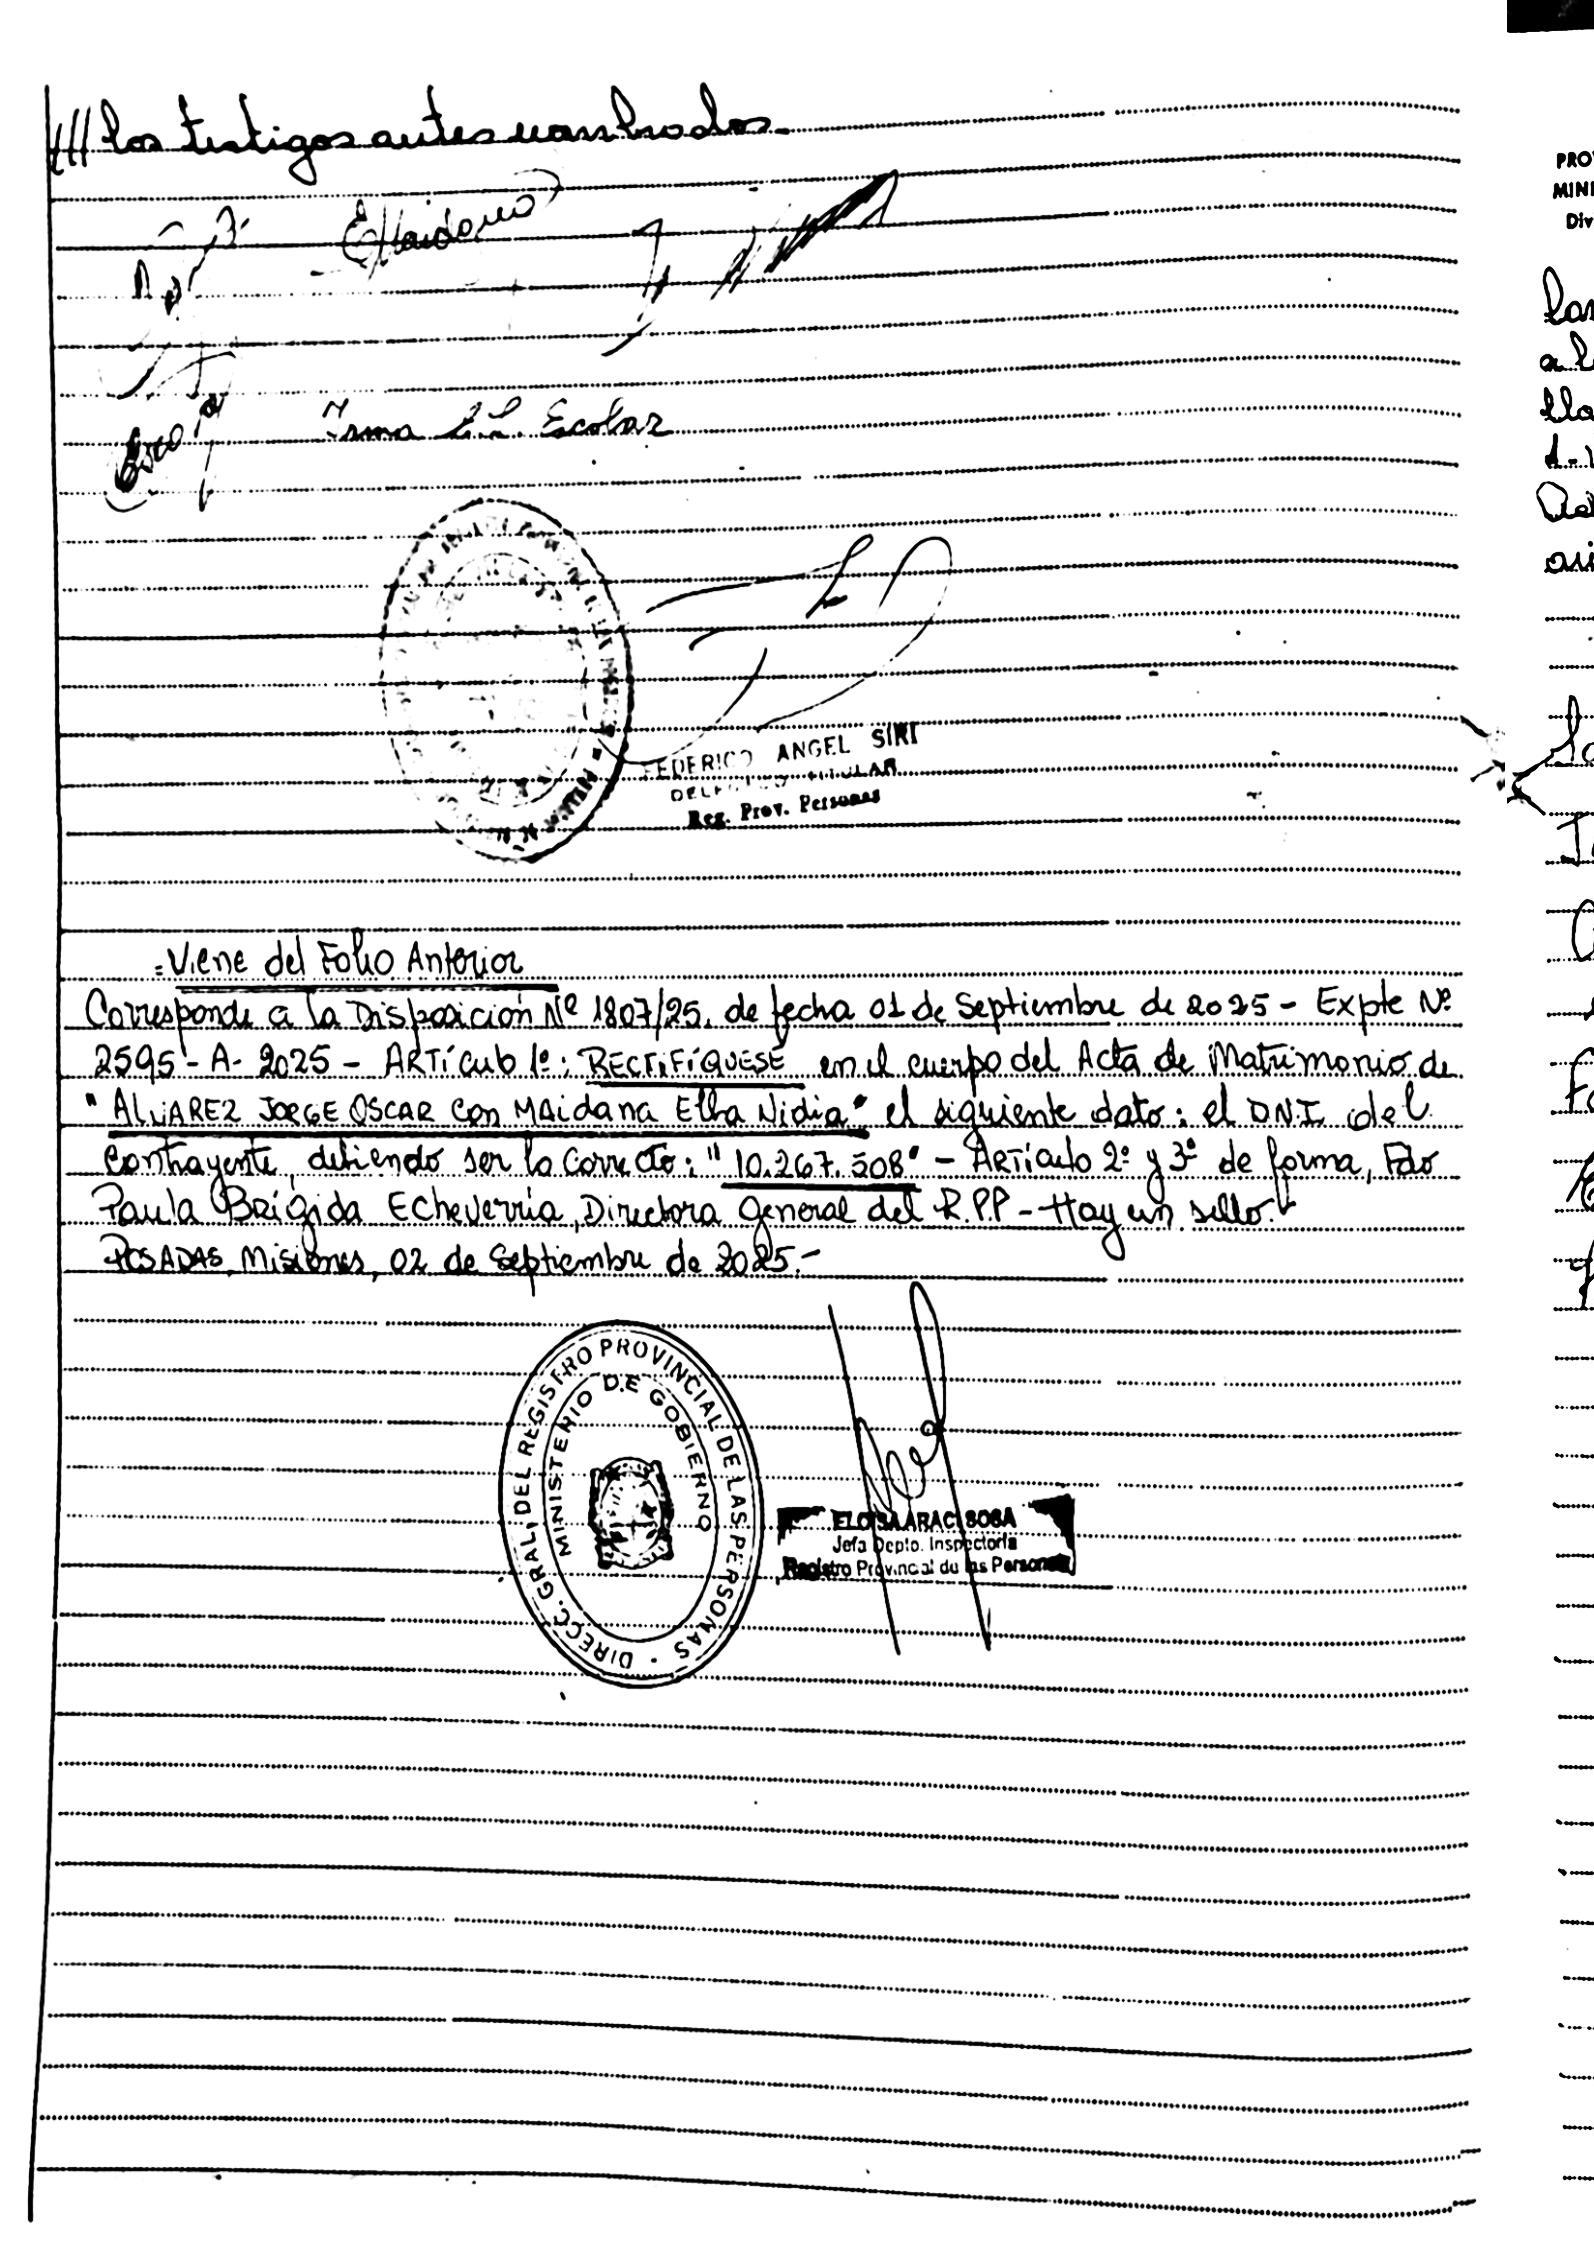 /// los testigos antes nombrados.-
EMaidana
Irma E.L. Escobar
FEDERICO ANGEL SIRI
DELEGADO TITULAR
Reg. Prov. Personas
= Viene del Folio Anterior
Corresponde a la Disposición Nº 1807/25. de fecha 01 de Septiembre de 2025 - Expte Nº
2595 - A - 2025 - ARTÍCULO 1º: RECTIFÍQUESE en el cuerpo del Acta de Matrimonio de
"ALVAREZ JORGE OSCAR con MAIDANA Elba Nidia" el siguiente dato: el D.N.I del
contrayente, debiendo ser lo correcto: "10.267.508" - ARTÍCULO 2º y 3º de forma, Fdo
Paula Brígida Echeverría, Directora General del R.P.P - Hay un sello.-
POSADAS, Misiones, 02 de Septiembre de 2025.-
DIRECC. GRAL. DEL REGISTRO PROVINCIAL DE LAS PERSONAS
MINISTERIO DE GOBIERNO
ELOISA ARACI SOSA
Jefa Depto. Inspectoría
Registro Provincial de las Personas
PRO
MINI
Div